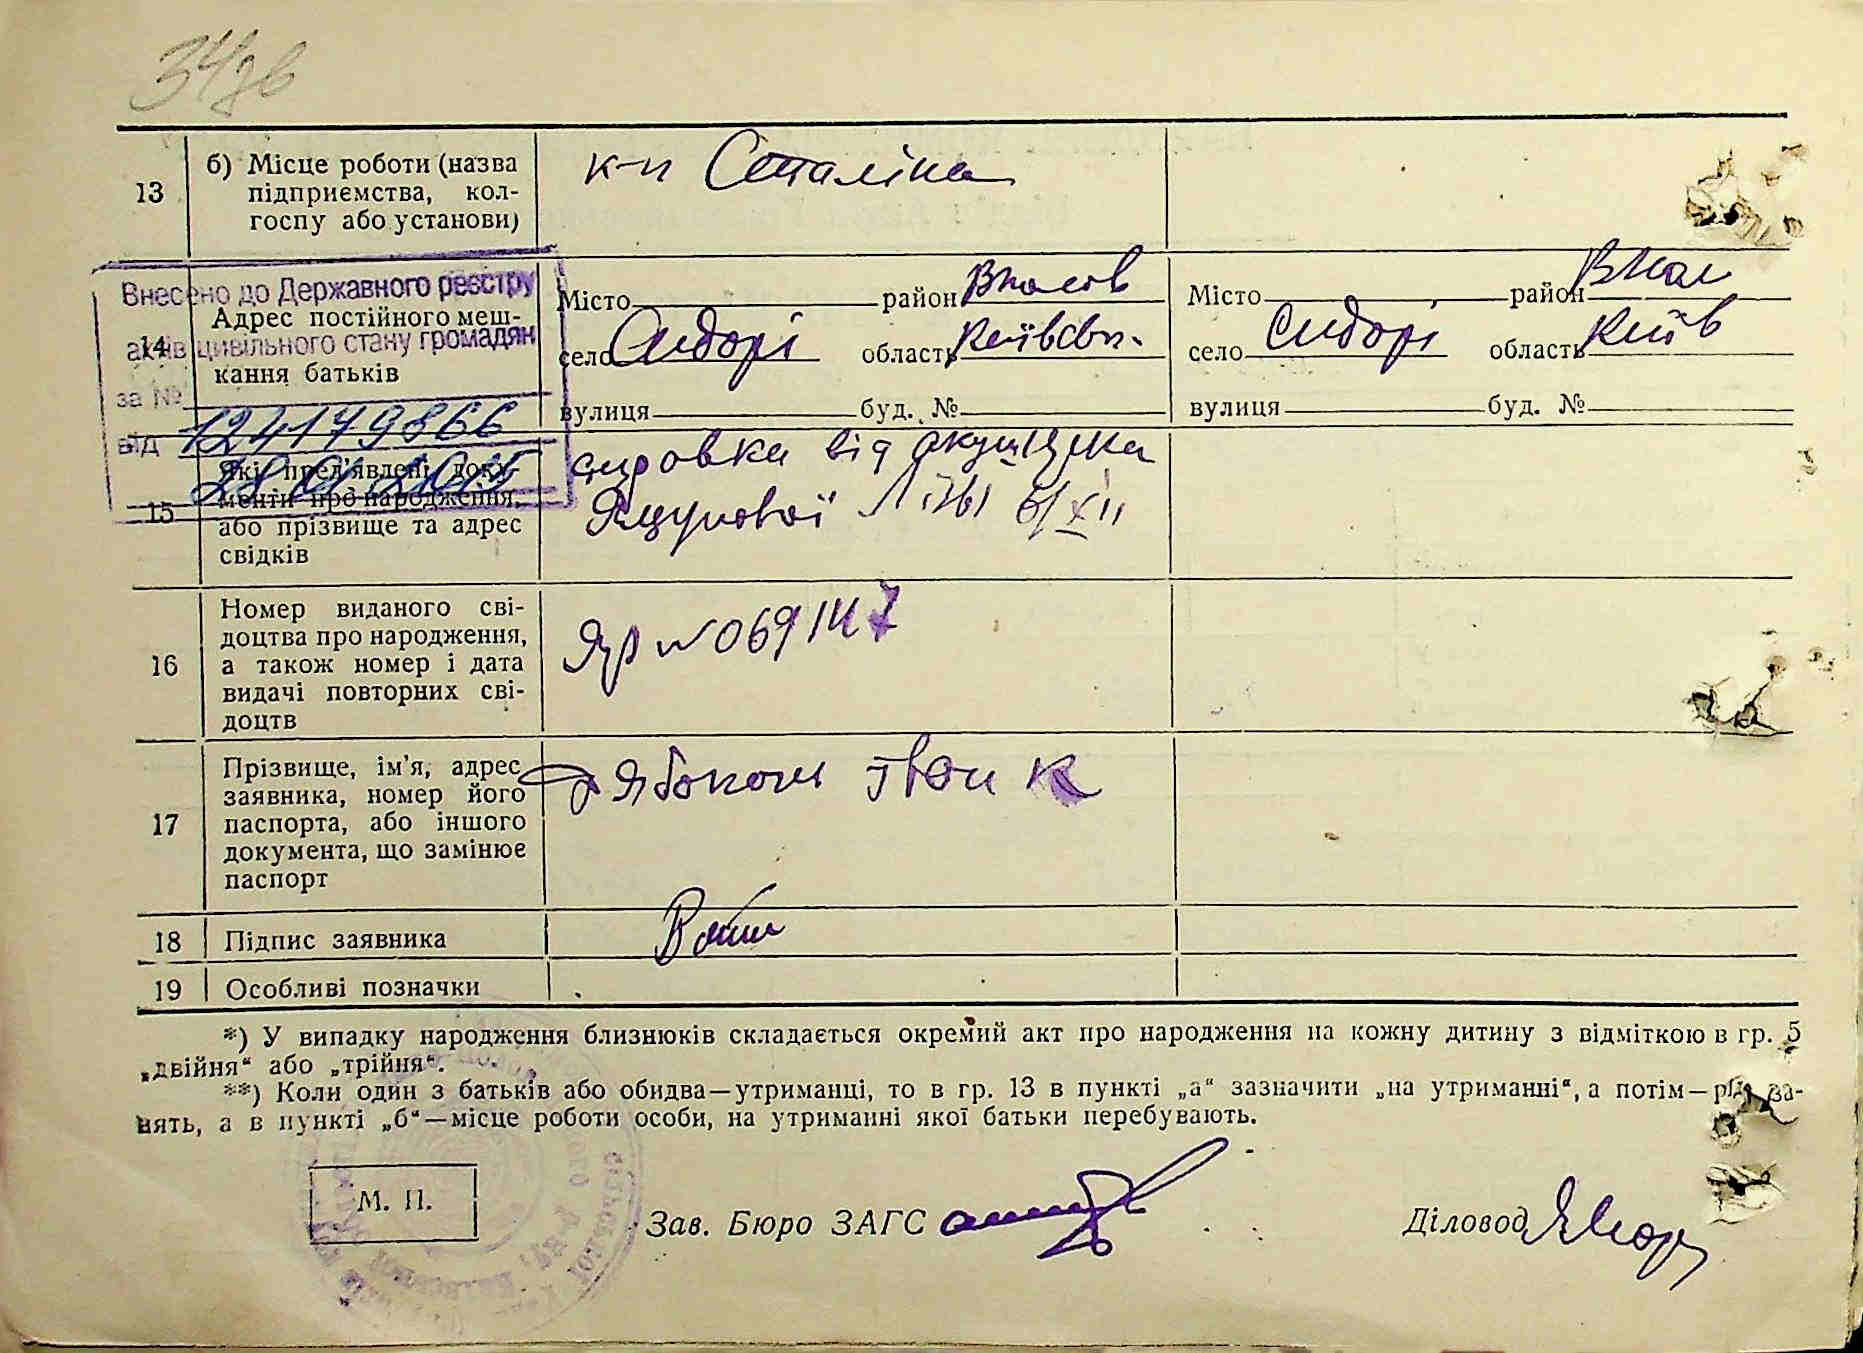 34зв
13 б) Місце роботи (назва
підприємства, кол-
госпу або установи)
к-п Сталіна
Внесено до Державного реєстру
актів цивільного стану громадян
за № 124179866
від 28 01 2015
14 Адрес постійного меш-
кання батьків
Місто район Білоцерків
село Сидорі область Київськ.
вулиця буд. №
Місто район
село Сидорі область Київ
вулиця буд. №
15 Які пред'явлені доку-
менти про народження,
або прізвище та адрес
свідків
від акушерка
Лізи 6/XII
16 Номер виданого сві-
доцтва про народження,
а також номер і дата
видачі повторних сві-
доцтв
ЯР № 069147
17 Прізвище, ім'я, адрес
заявника, номер його
паспорта, або іншого
документа, що замінює
паспорт
Яблокон Іван К
18 Підпис заявника
19 Особливі позначки
*) У випадку народження близнюків складається окремий акт про народження на кожну дитину з відміткою в гр. 5
„двійня“ або „трійня“.
**) Коли один з батьків або обидва—утриманці, то в гр. 13 в пункті „а“ зазначити „на утриманні“, а потім—рід за-
нять, а в пункті „б“—місце роботи особи, на утриманні якої батьки перебувають.
М. П.
Зав. Бюро ЗАГС
Діловод